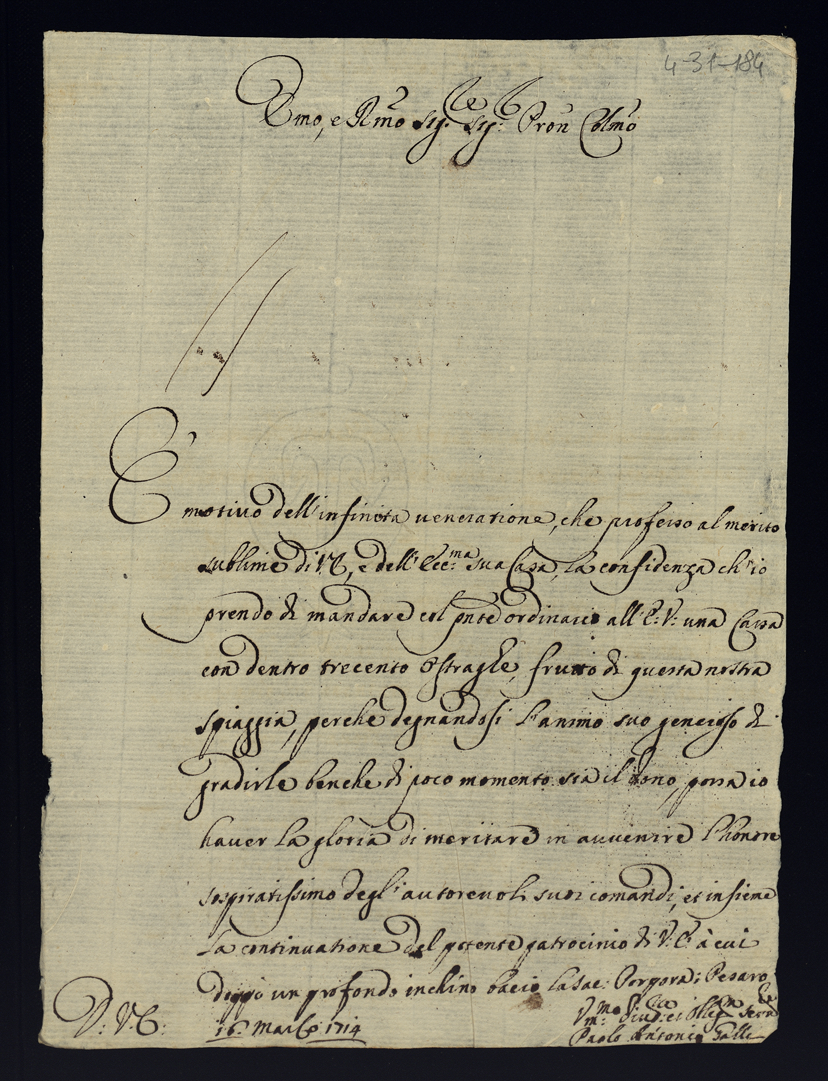 4-31-184
Emo, e Rmo Sig.re Sig.r Pron Colmo
È motivo dell'infinita veneratione, che professo al merito
sublime di V.E., e dell'Ecc.ma sua Casa, la confidenza ch'io
prendo di mandare col pnte ordinario all'E: V: una Cassa
con dentro trecento Ostraghe, frutto di questa nostra
spiaggia, perche degnandosi l'animo suo generoso di
gradirle benche di poco momento sia il dono, possa io
haver la gloria di meritare in avvenire l'honore
sospiratissimo degl'autorevoli suoi comandi, et insieme
la continuatione del potente patrocinio di V.E. à cui
doppo un profondo inchino bacio la sac: Porpora; Pesaro
D: V: E: 16 Marzo 1714
V.mo Div.mo et Oblig.mo Serv.re
Paolo Antonio Galli